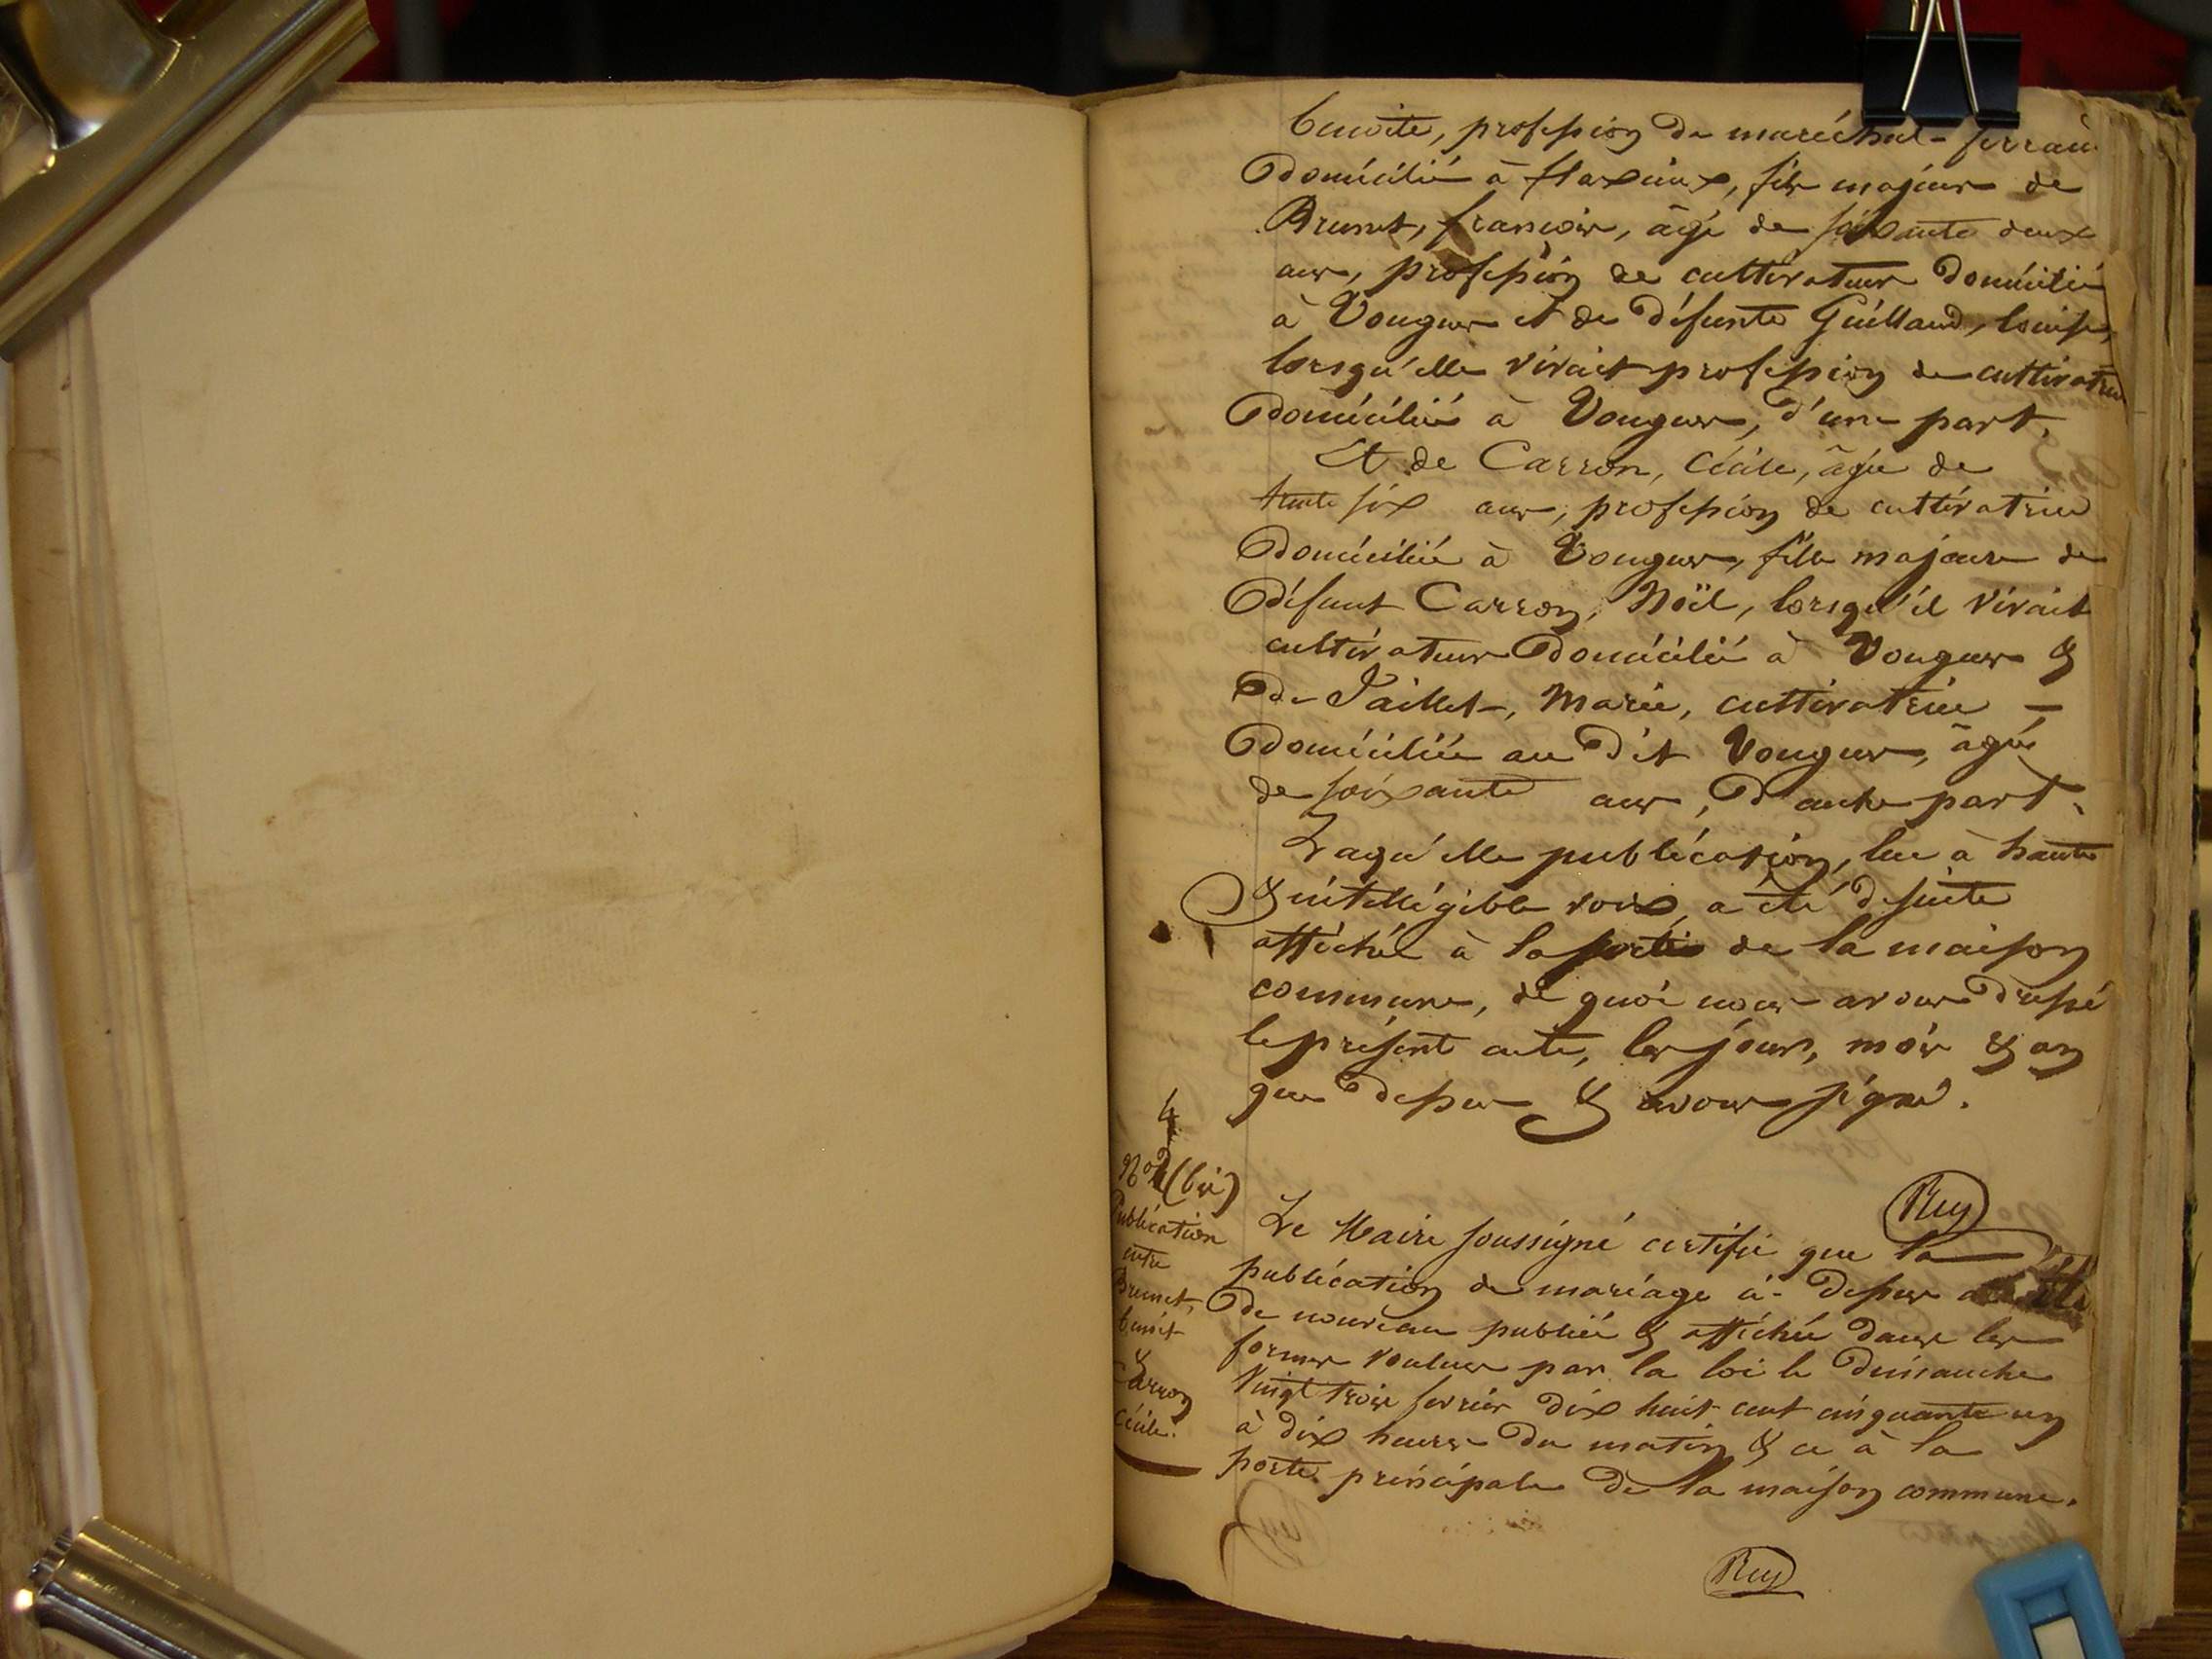 benoite, profession de maréchal-ferrant
Domicilié à flaxieux, fils majeur de
Brunet, françois, âgé de soixante deux
ans, profession de cultivateur Domicilié
à Vongnes et de Défunte Guilland, louise,
lorsqu'elle vivait profession de cultivatrice
Domiciliée à Vongnes, d'une part.
Et de Carron, Cécile, âgée de
trente six ans, profession de cultivatrice
Domiciliée à Vongnes, fille majeure de
Défunt Carron, Noël, lorsqu'il vivait
cultivateur Domicilié à Vongnes &
De Paillet, Marie, cultivatrice –
Domiciliée au Dit Vongnes, âgée
de soixante ans, D'autre part.
Laqu'elle publication, lue à haute
& intelligible voix, a été desuite
affichée à la porte de la maison
commune, de quoi nous avons Dressé
le présent acte, les jour, mois & an
que Dessus & avons signé.
Rey
4
Nº (bis)
Publication
entre
Brunet,
benoit
&
Carron
Cécile.
Le Maire soussigné certifie que la
publication de mariage ci-Dessus a été
De nouveau publiée & affichée dans les
formes voulues par la loi le Dimanche
vingt trois février Dix huit cent cinquante un
à Dix heures Du matin & ce à la
porte principale De la maison commune.
Rey